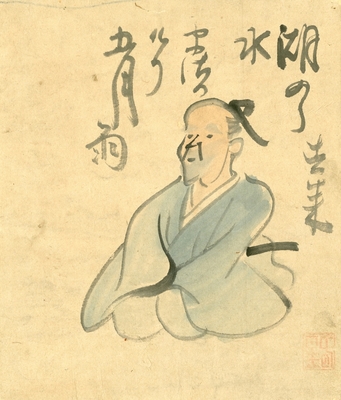 去来
湖の
水
まさり
けり
五月雨